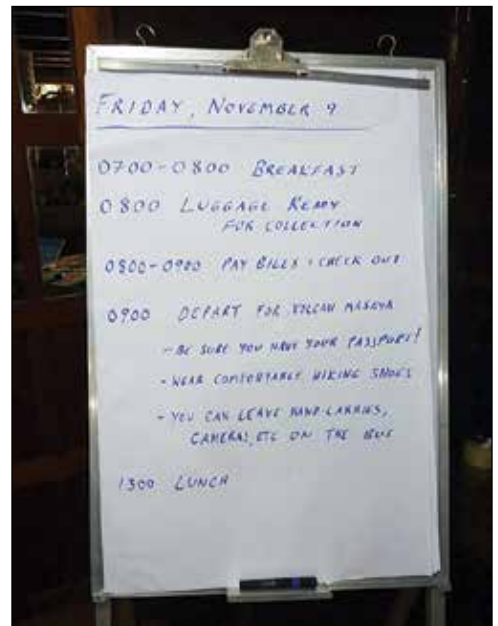 FRIDAY, NOVEMBER 9
0700-0800 BREAKFAST
0800 LUGGAGE READY
FOR COLLECTION
0800-0900 PAY BILLS + CHECK OUT
0900 DEPART FOR VOLCAN MASAYA
- BE SURE YOU HAVE YOUR PASSPORT!
- WEAR COMFORTABLE HIKING SHOES
- YOU CAN LEAVE HAND-CARRIES,
CAMERAS, ETC ON THE BUS
1300 LUNCH